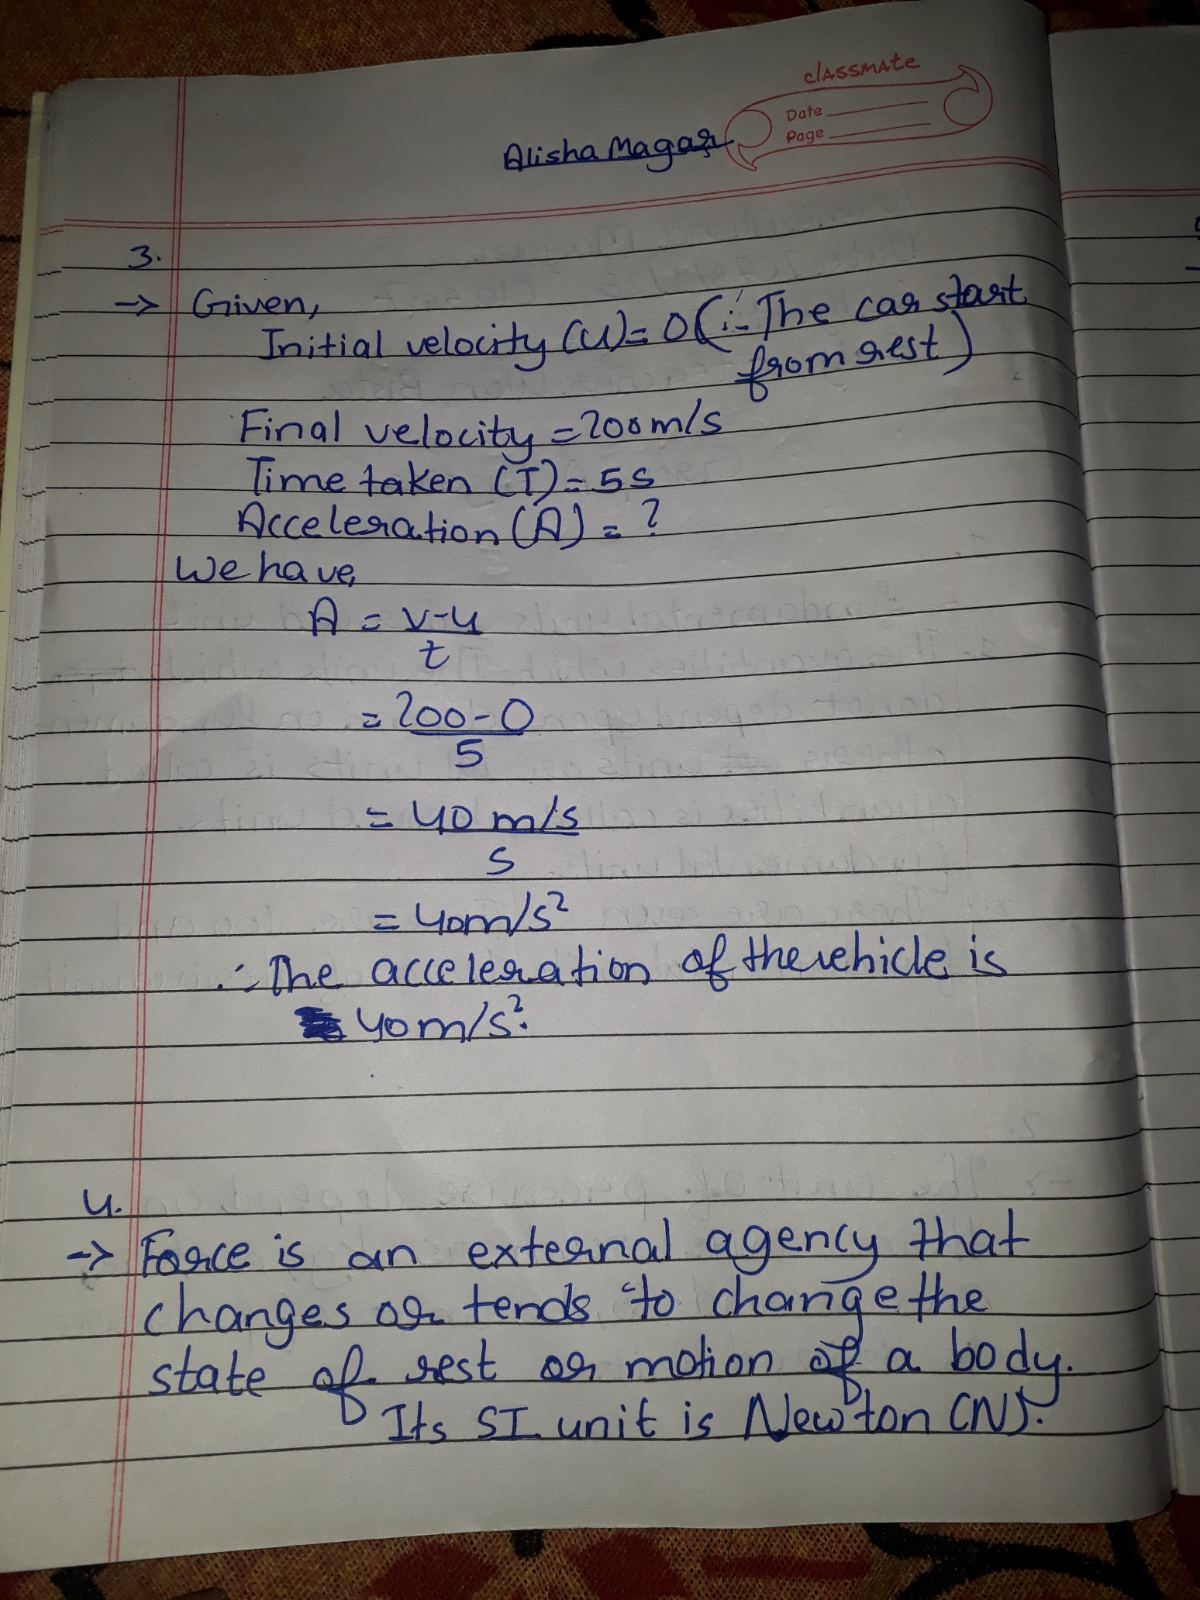 classmate
Date
Page
Alisha Magar
3.
→ Given,
Initial velocity (u)= 0(∵ The car start
from rest)
Final velocity = 200m/s
Time taken (T)= 5s
Acceleration (A) = ?
We have,
A = v-u
t
= 200-0
5
= 40 m/s
s
= 40m/s²
∴ The acceleration of the vehicle is
40m/s².
4.
→ Force is an external agency that
changes or tends to change the
state of rest or motion of a body.
Its SI unit is Newton (N).